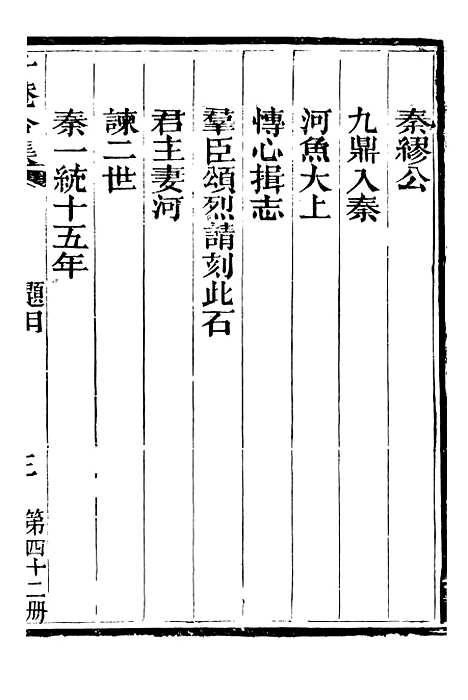 秦繆公
九鼎入秦
河魚大上
慱心揖志
羣臣頌烈請刻此石
君主妻河
諫二世
秦一統十五年
題目
第四十二册